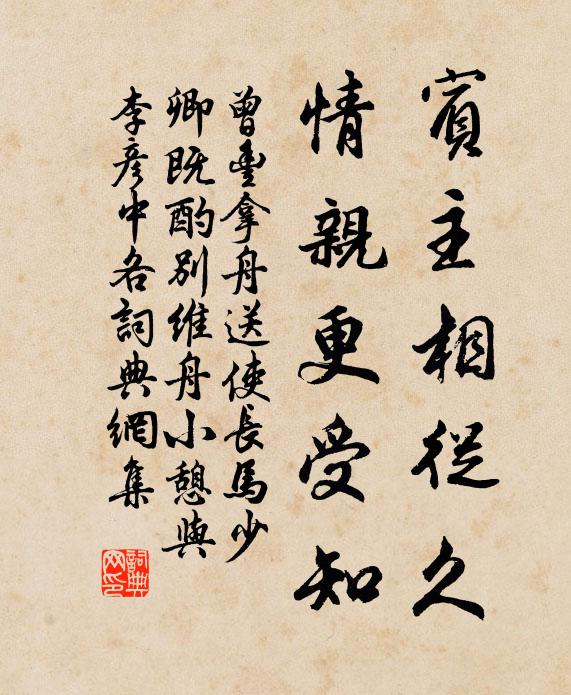 賓主相從久
情親更受知
曾豐拿舟送使長馬少
卿既酌別維舟小憩與
李彥中各詞典網集
詞典网印